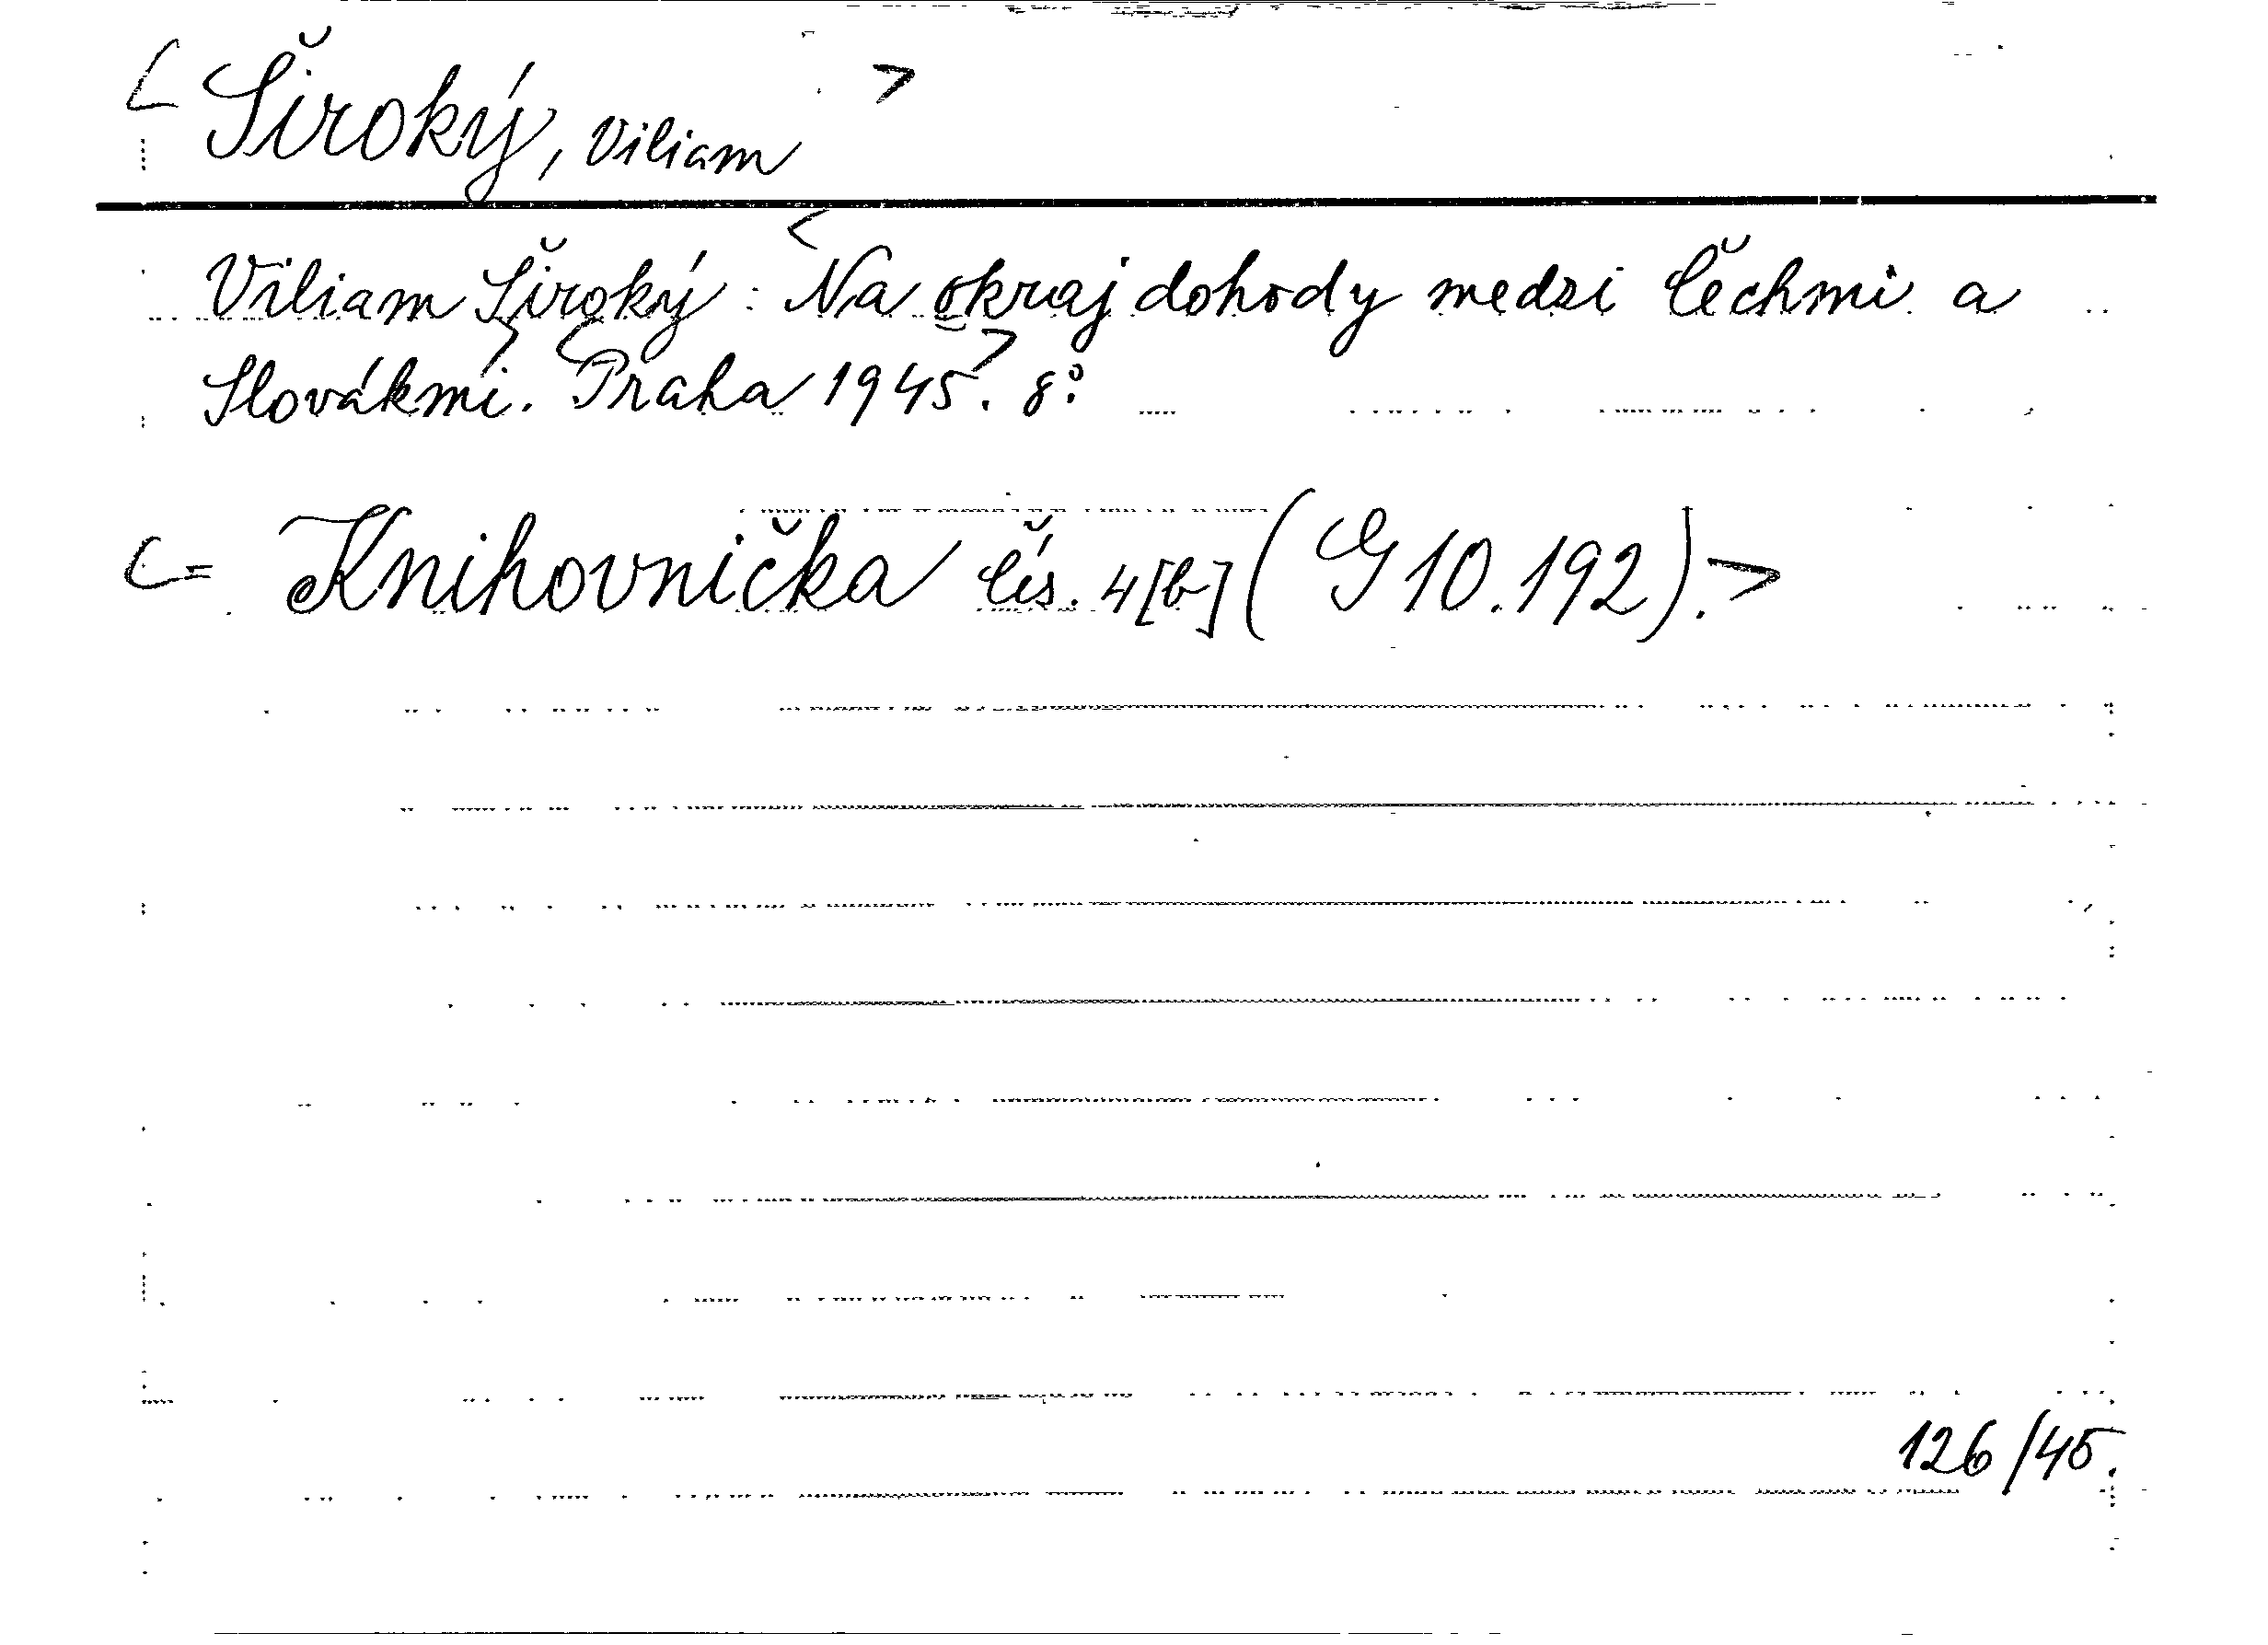 < Široký, Viliam >
Viliam Široký: <Na okraj dohody medzi Čechmi a
Slovákmi.> <Praha 1945.> 8°
<= Knihovnička čís. 4[b] (G 10.192).>
126/45.